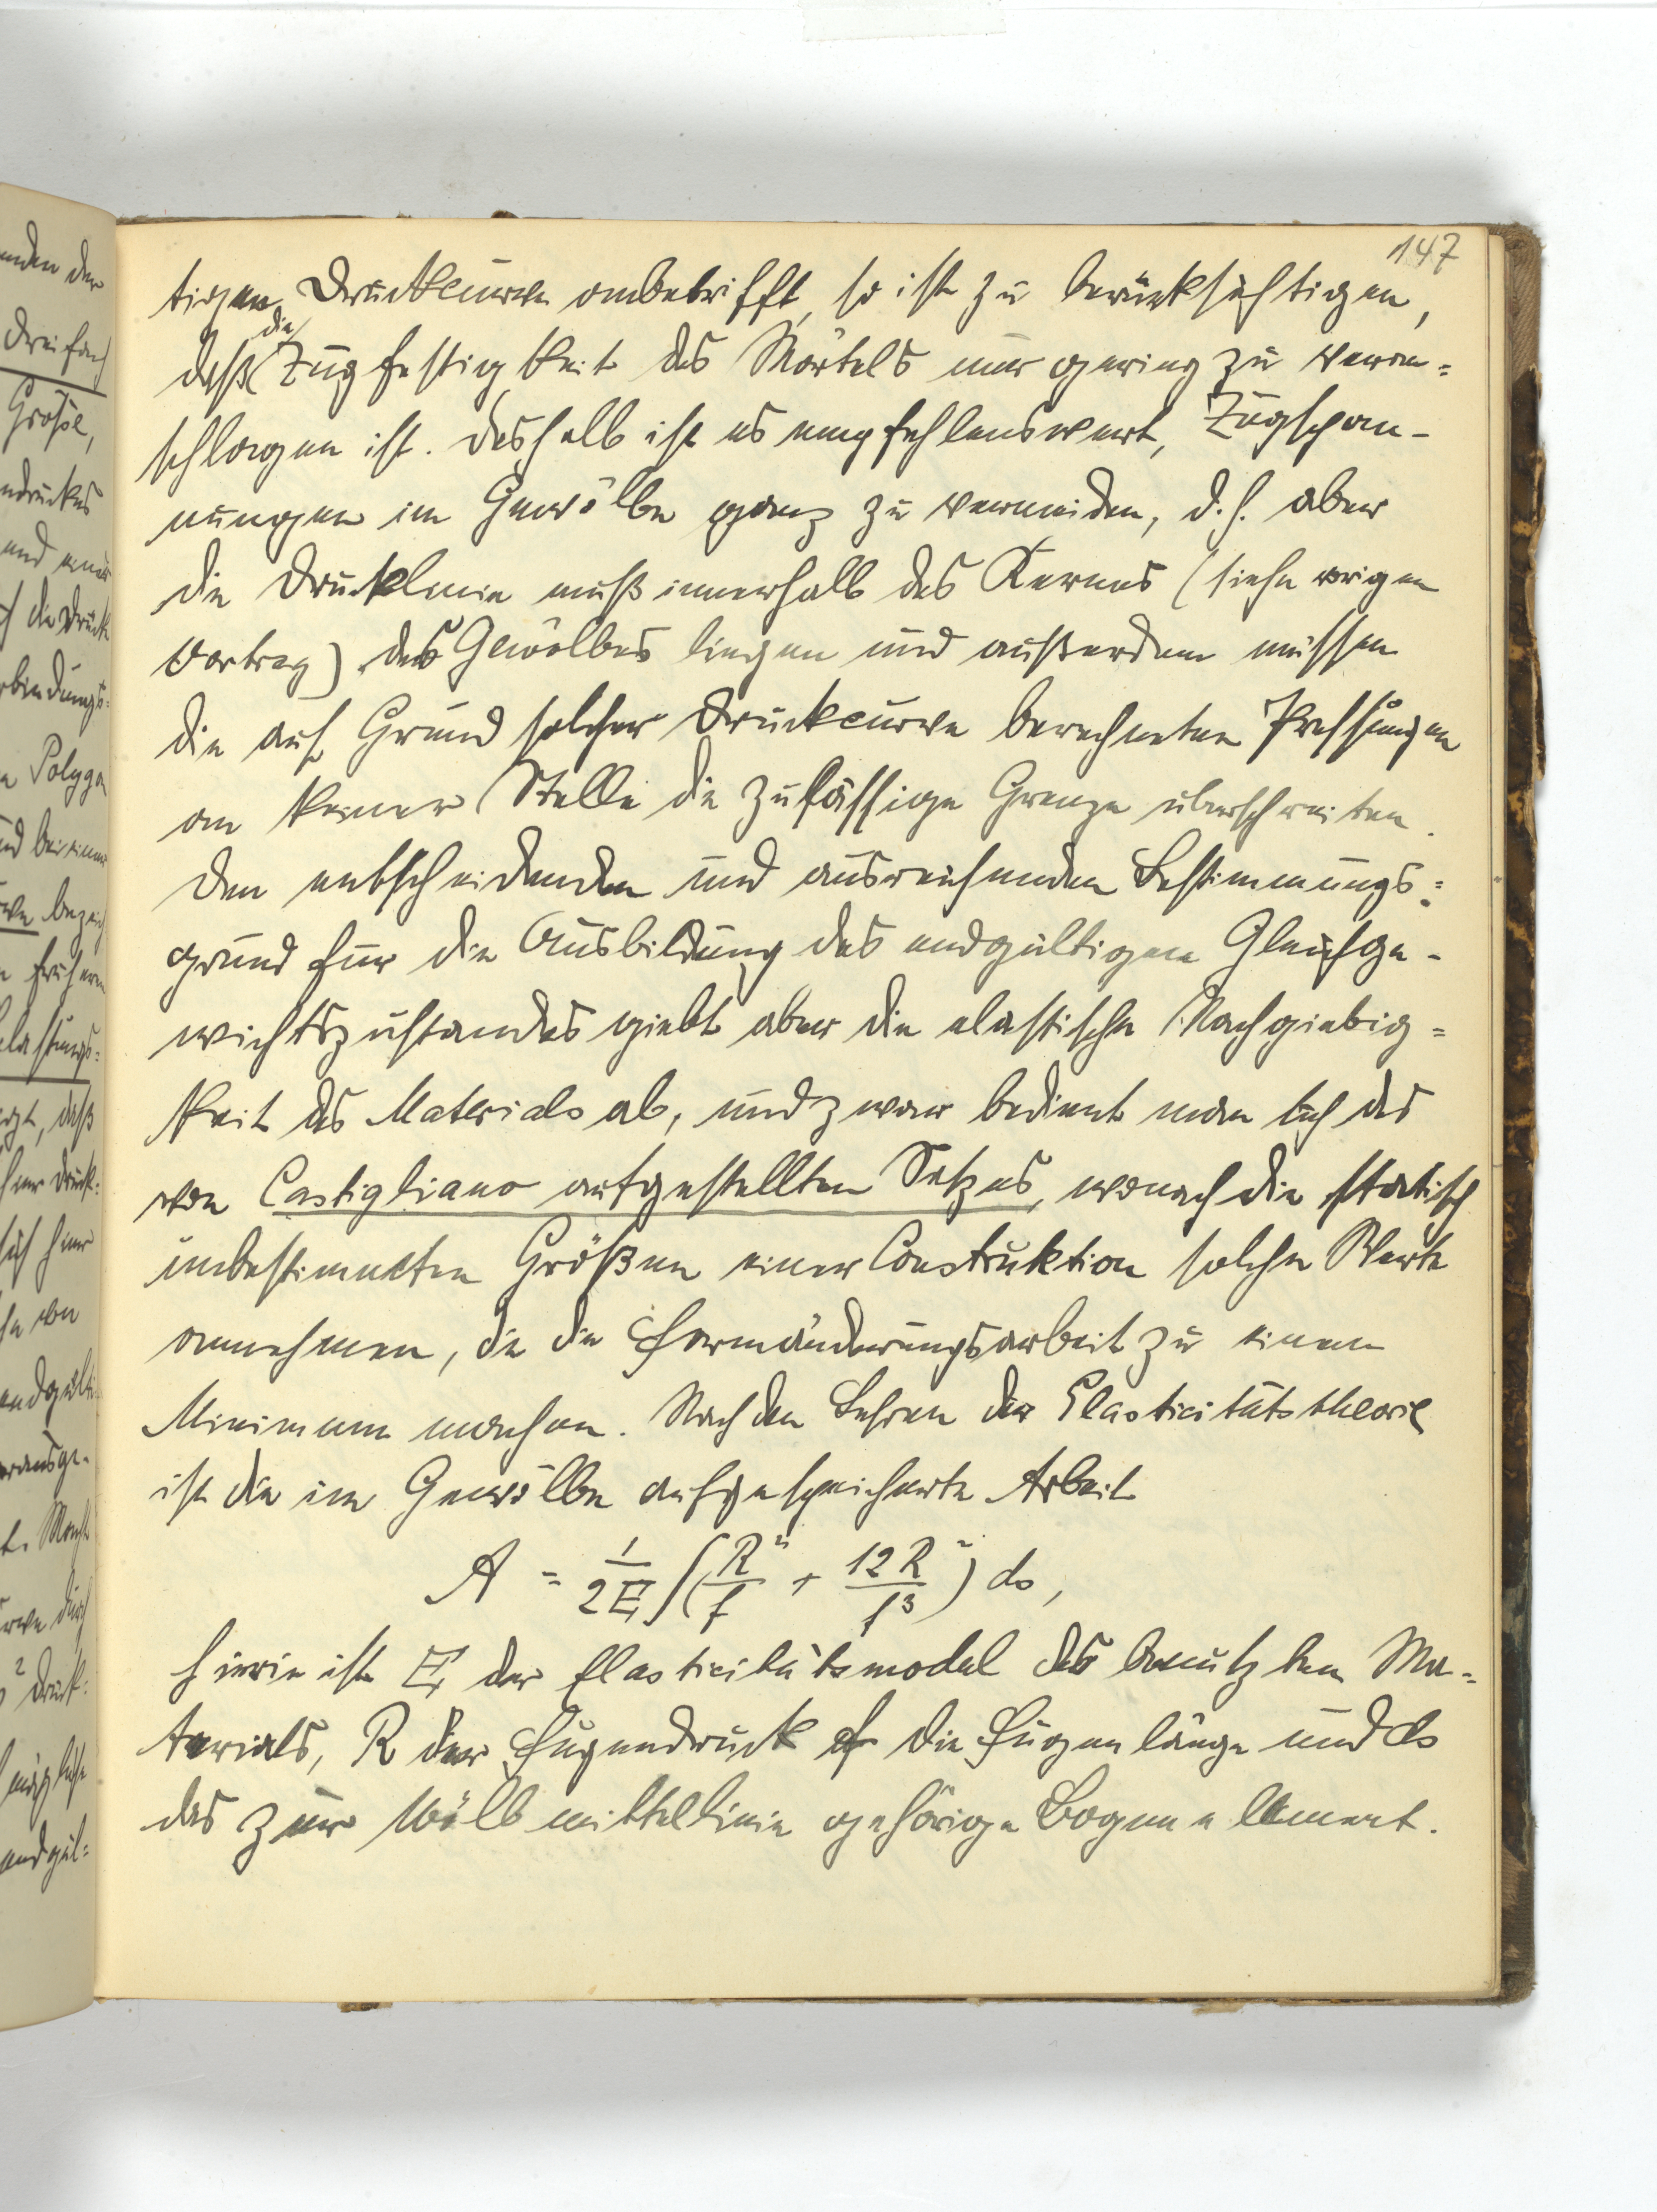 147
tigen Druckcurve anbetrifft, so ist zu berücksichtigen,
daß die Zugfestigkeit des Mörtels nur gering zu veran=
schlagen ist. Deshalb ist es empfehlenswert, Zugspan-
nungen im Gewölbe ganz zu vermeiden, d.h. aber
die Drucklinie muß innerhalb des Kernes (siehe vorigen
Vortrag) des Gewölbes liegen und außerdem müssen
die auf Grund solcher Druckcurve berechneten Pressungen
an keiner Stelle die zulässige Grenze überschreiten.
Den entscheidenden und ausreichenden Bestimmungs=
grund für die Ausbildung des endgültigen Gleichge-
wichtszustandes giebt aber die elastische Nachgiebig=
keit des Materials ab, und zwar bedient man sich des
von Castigliano aufgestellten Satzes, wonach die statisch
unbestimmten Größen einer Construktion solche Werte
annehmen, die die Formänderungsarbeit zu einem
Minimum machen. Nach den Lehren der Elasticitätstheorie
ist die im Gewölbe aufgespeicherte Arbeit
A = 1/2E ∫(R²/f + 12R²/f³) ds,
hierin ist E der Elasticitätsmodel des benutzten Ma=
terials, R der Fugendruck f die Fugenlänge und ds
das zur Wölbmittellinie gehörige Bogenelement.